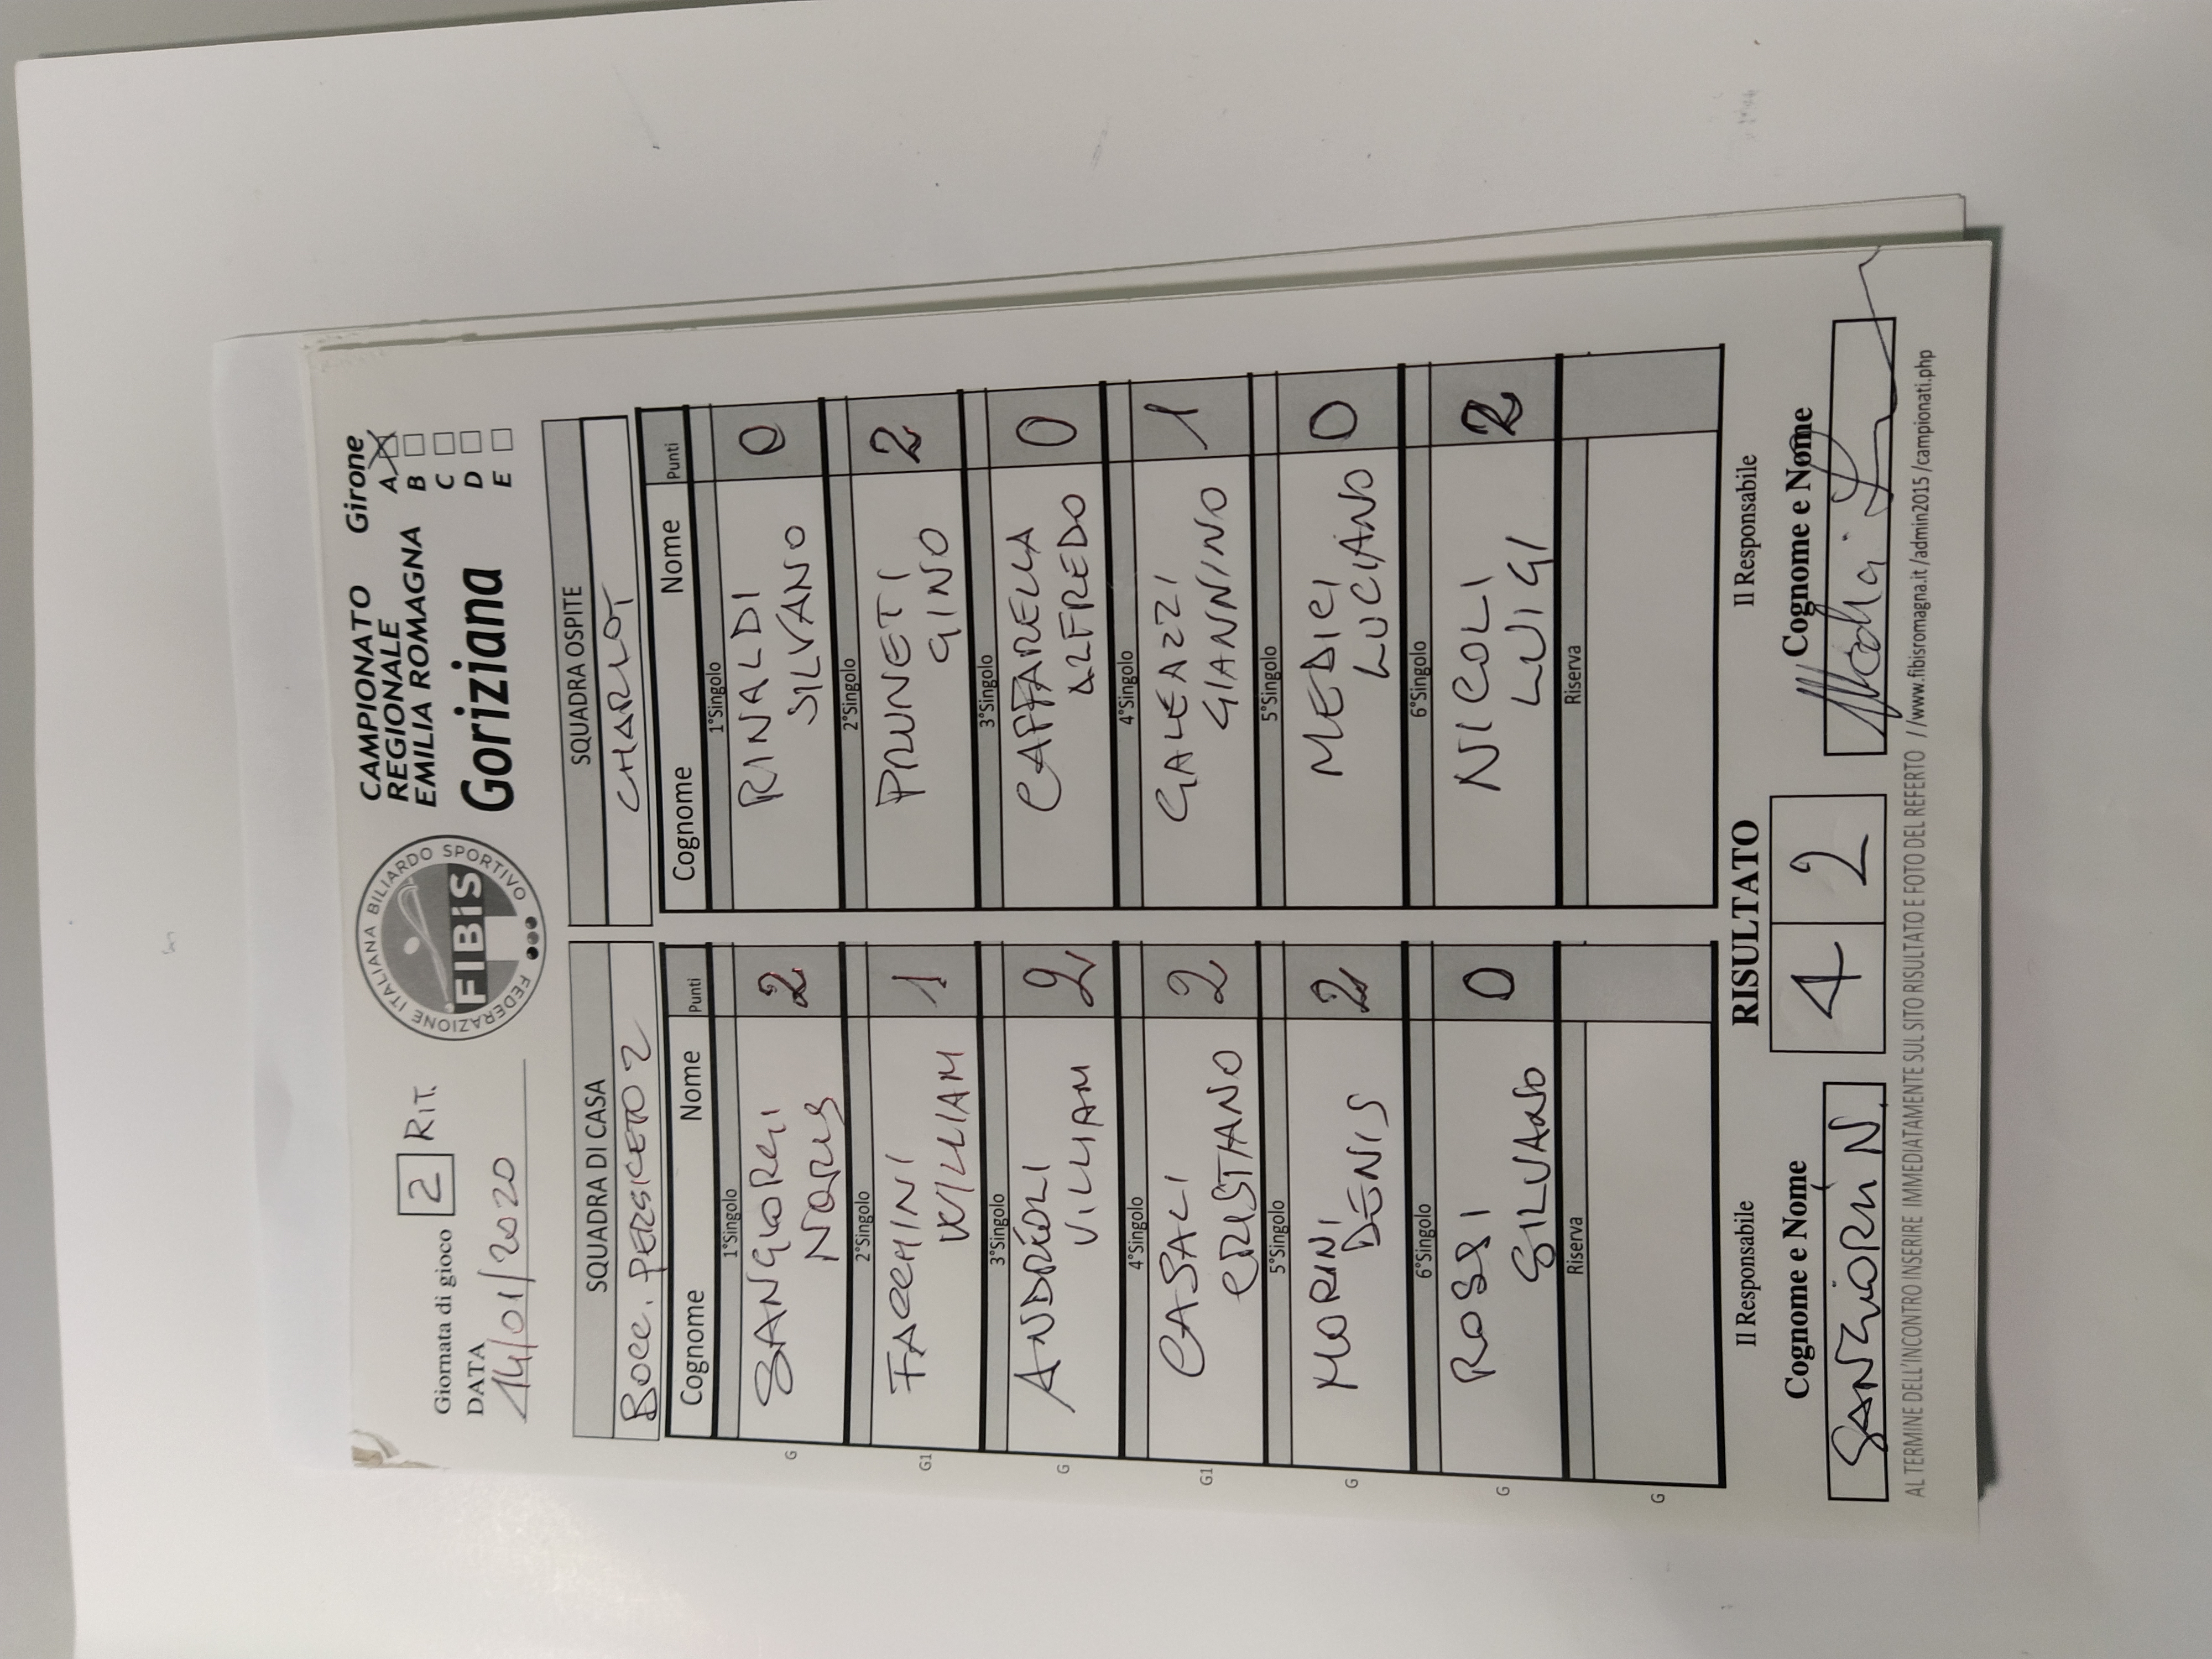 Giornata di gioco 2 RIT.
DATA
14/01/2020
FEDERAZIONE ITALIANA BILIARDO SPORTIVO
FIBiS
CAMPIONATO
REGIONALE
EMILIA ROMAGNA
Goriziana
Girone
A
B
C
D
E
SQUADRA DI CASA
BOCC. PERSICETO 2
Cognome Nome Punti
1°Singolo
G SANGIORGI 2
NORIS
2°Singolo
G1 FACCHINI 1
WILLIAM
3°Singolo
G ANDREOLI 2
VILLIAM
4°Singolo
G1 CASALI 2
CRISTIANO
5°Singolo
G MORINI 2
DENIS
6°Singolo
G ROSSI 0
SILVANO
Riserva
G
SQUADRA OSPITE
CHARLOT
Cognome Nome Punti
1°Singolo
RINALDI 0
SILVANO
2°Singolo
PRUNETI 2
GINO
3°Singolo
CAFFARELLA 0
ALFREDO
4°Singolo
GALEAZZI 1
GIANNINO
5°Singolo
MEDICI 0
LUCIANO
6°Singolo
NICOLI 2
LUIGI
Riserva
Il Responsabile RISULTATO Il Responsabile
Cognome e Nome 4 2 Cognome e Nome
SANGIORGI N.
AL TERMINE DELL'INCONTRO INSERIRE IMMEDIATAMENTE SUL SITO RISULTATO E FOTO DEL REFERTO //www.fibisromagna.it/admin2015/campionati.php